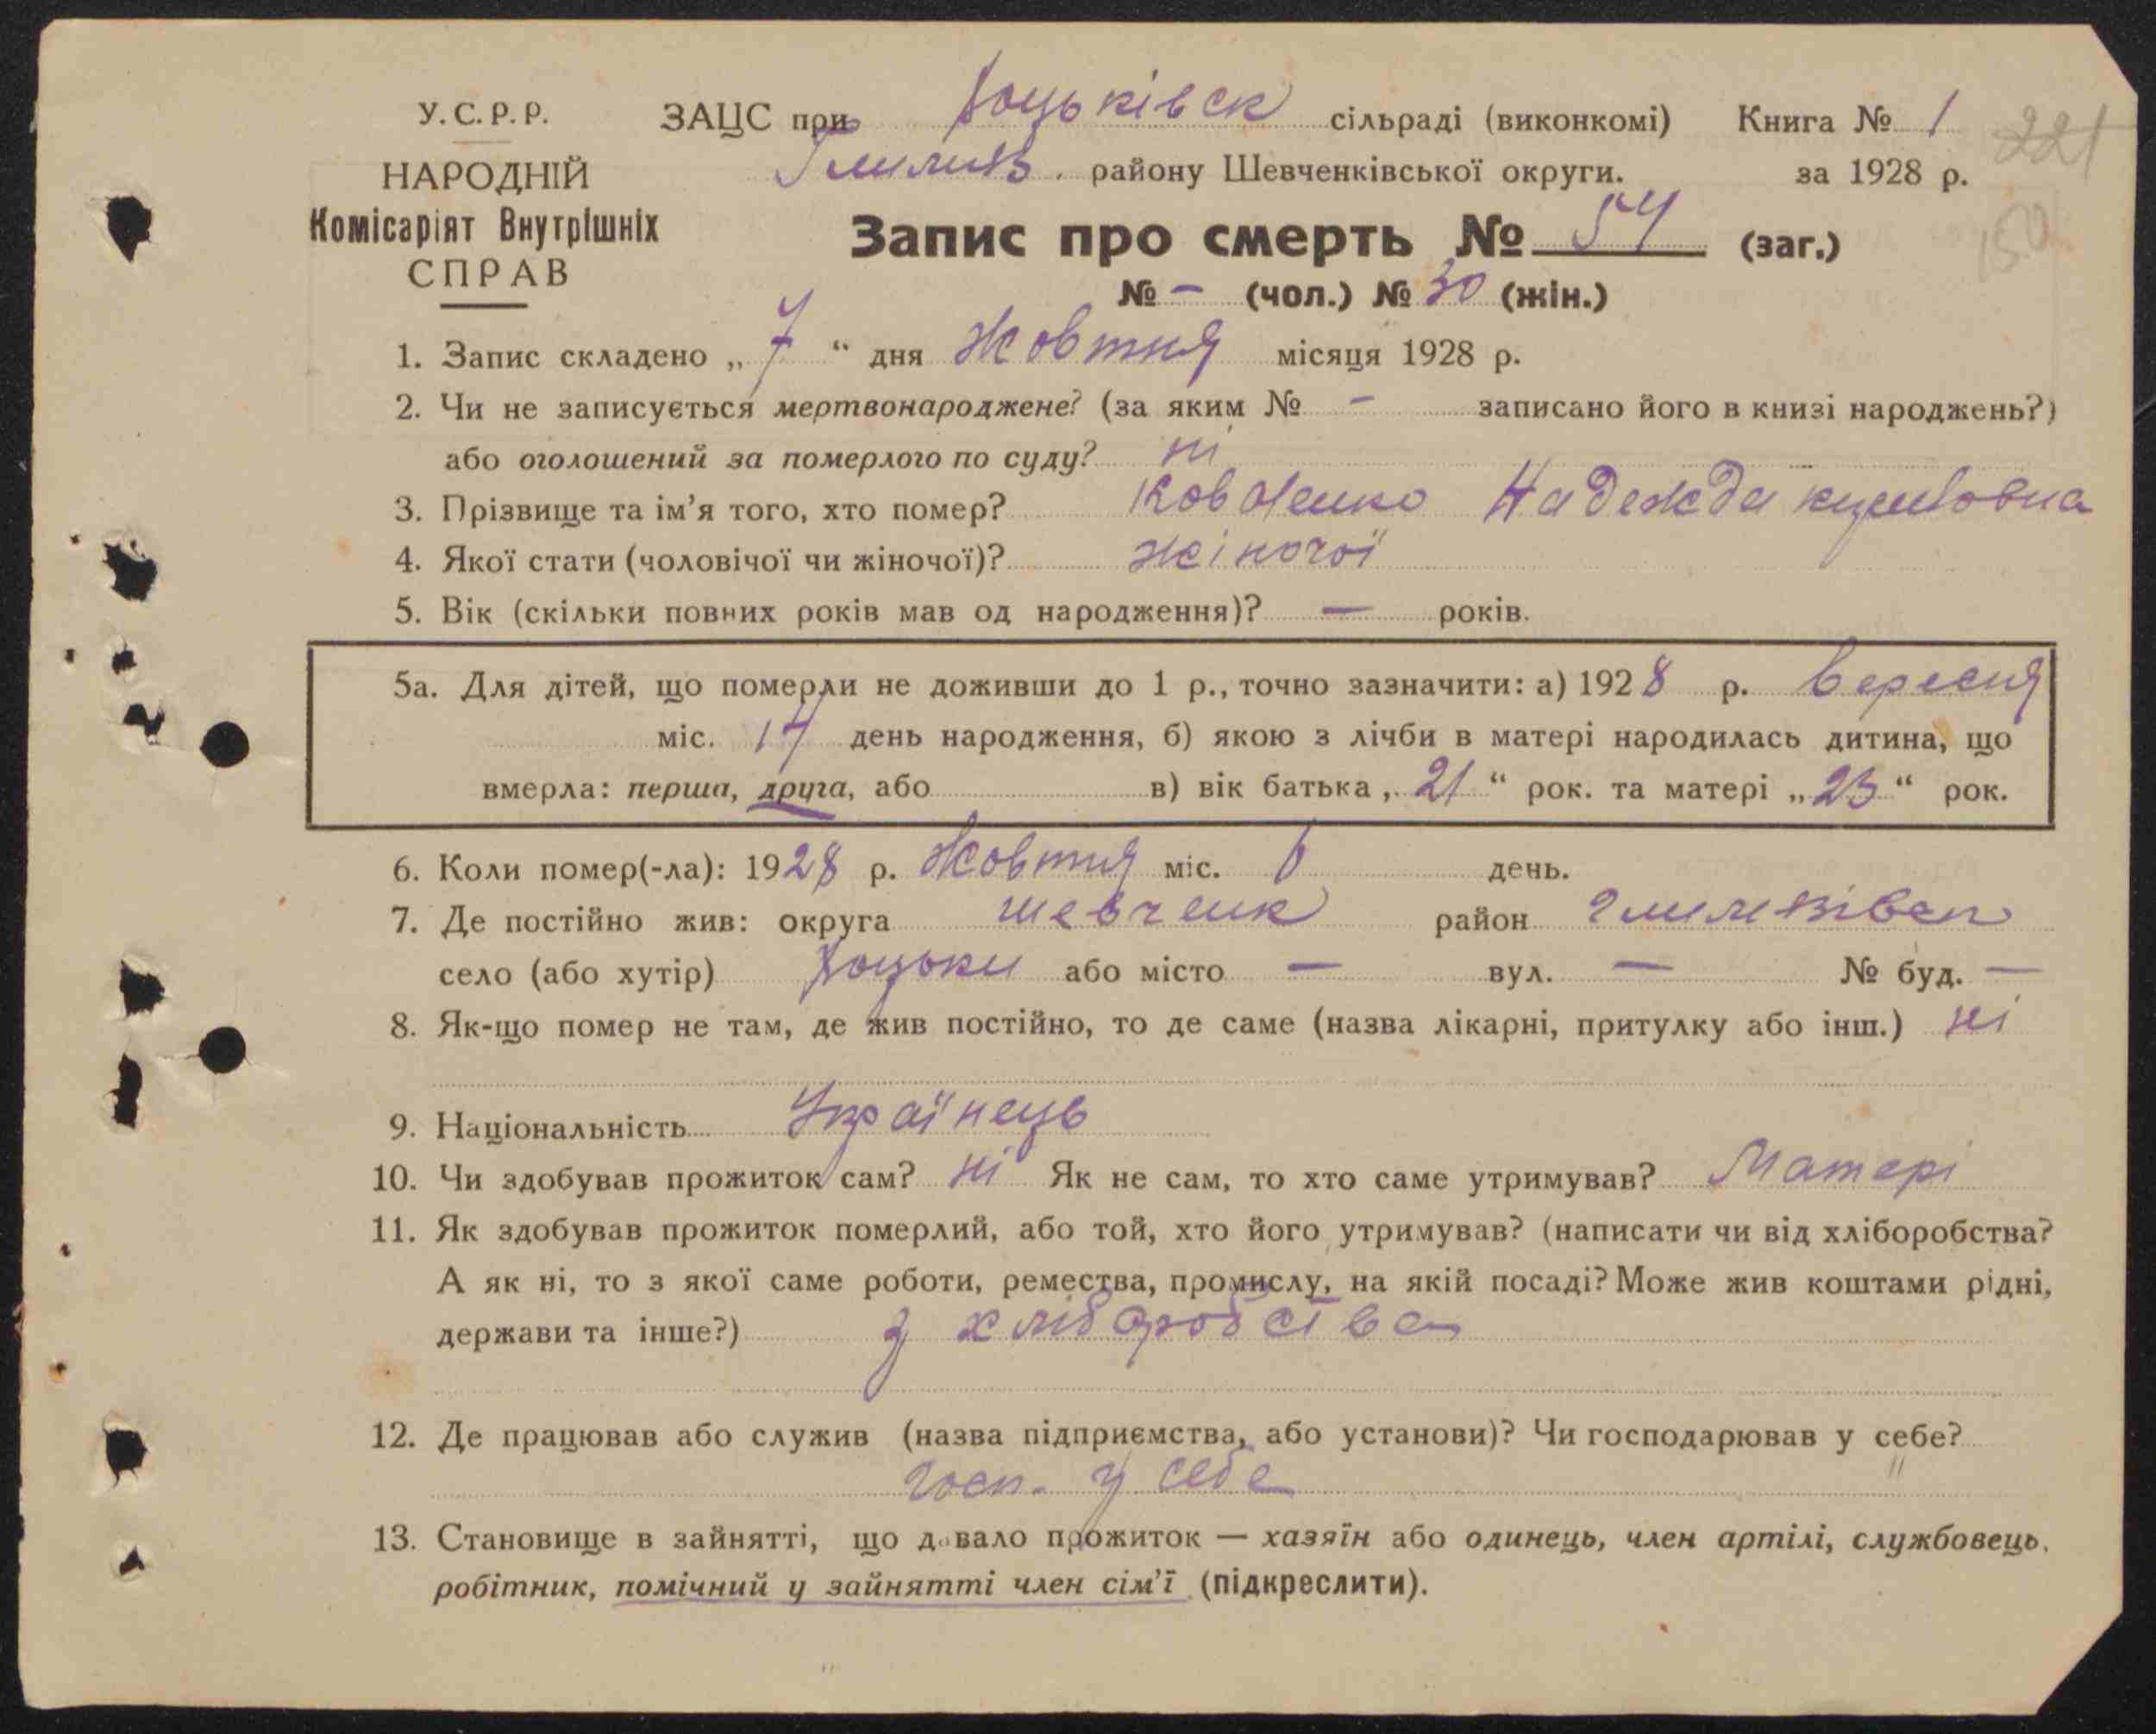 У.С.Р.Р.
НАРОДНІЙ
Комісаріят Внутрішніх
СПРАВ
ЗАЦС при Яцьківск сільраді (виконкомі) Книга № 1
району Шевченківської округи. за 1928 р.
221
150
Запис про смерть № 54 (заг.)
№ - (чол.) № 30 (жін.)
1. Запис складено „ 7 “ дня Жовтня місяця 1928 р.
2. Чи не записується мертвонароджене? (за яким № - записано його в книзі народжень?)
або оголошений за померлого по суду? ні
3. Прізвище та ім’я того, хто помер? Надежда
4. Якої стати (чоловічої чи жіночої)? жіночої
5. Вік (скільки повних років мав од народження)? — років.
5а. Для дітей, що померли не доживши до 1 р., точно зазначити: а) 1928 р. Вересня
міс. 17 день народження, б) якою з лічби в матері народилась дитина, що
вмерла: перша, друга, або в) вік батька „ 21 “ рок. та матері „ 23 “ рок.
6. Коли помер(-ла): 1928 р. Жовтня міс. 6 день.
7. Де постійно жив: округа шевченк район
село (або хутір) або місто — вул. — № буд. —
8. Як-що помер не там, де жив постійно, то де саме (назва лікарні, притулку або інш.) ні
9. Національність Українець
10. Чи здобував прожиток сам? ні Як не сам, то хто саме утримував? Матері
11. Як здобував прожиток померлий, або той, хто його утримував? (написати чи від хліборобства?
А як ні, то з якої саме роботи, ремества, промислу, на якій посаді? Може жив коштами рідні,
держави та інше?) з хліборобства
12. Де працював або служив (назва підприємства, або установи)? Чи господарював у себе?
госп. у себе
13. Становище в зайнятті, що давало прожиток — хазяїн або одинець, член артілі, службовець,
робітник, помічний у зайнятті член сім’ї (підкреслити).